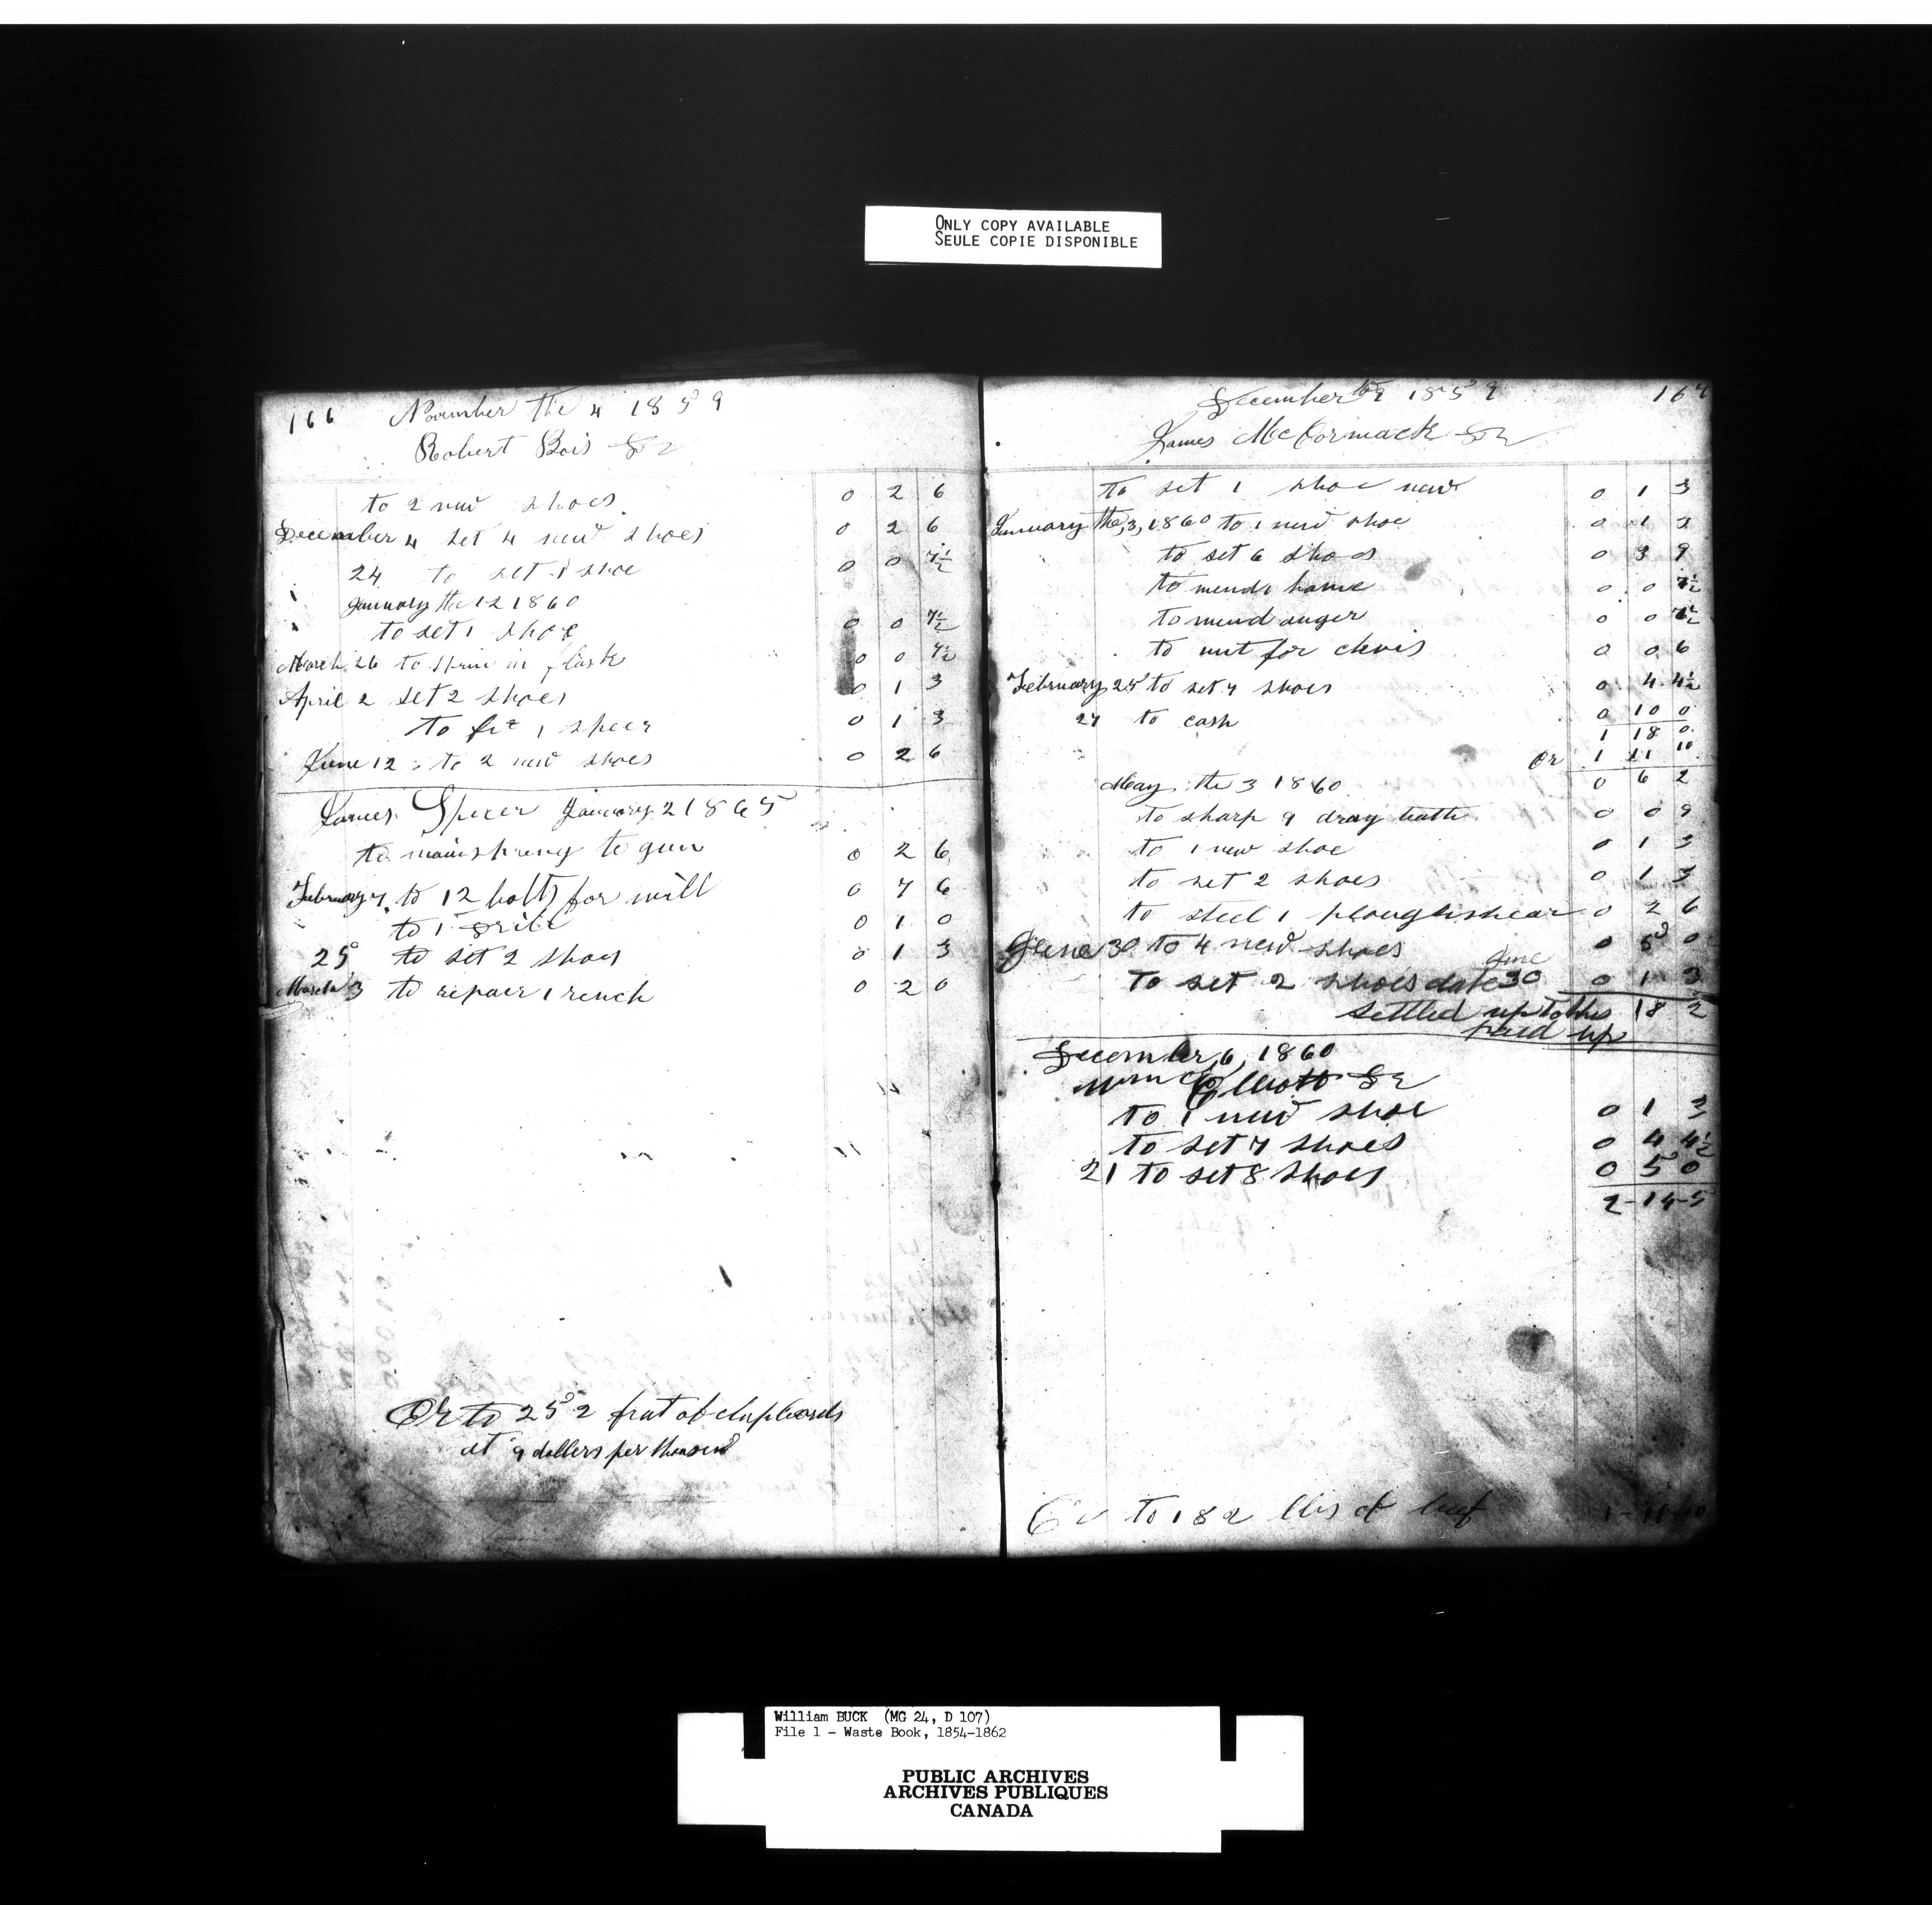 ONLY COPY AVAILABLE
SEULE COPIE DISPONIBLE
166 November the 4 1859
Robert Bois Dr
to 2 new shoes 0 2 6
December 4 set 4 new shoes 0 2 6
24 to set 1 shoe 0 0 7½
January the 12 1860
to set 1 shoe 0 0 7½
March 26 to in flask 0 0 7½
April 2 set 2 shoes 0 1 3
to 1 0 1 3
June 12 to 2 new shoes 0 2 6
James Spicer January 2 1865
to mainspreng to gun 0 2 6
February 7 to 12 bolts for mill 0 7 6
to 1 0 1 0
25 to set 2 shoes 0 1 3
March 3 to repair 1 rench 0 2 0
Cr to 252 feat of clapboards
at 9 dollers per thousend
December the 9 1859 167
James McCormack Dr
to set 1 shoe new 0 1 3
January the, 3, 1860 to 1 new shoe 0 1 3
to set 6 shoes 0 3 9
to mend 1 hame 0 0 7½
to mend auger 0 0 7½
to nut for clevis 0 0 6
February 25 to set 7 shoes 0 4 4½
27 to cash 0 10 0
1 18 0
Cr 1 11 10
May the 3 1860 0 6 2
to sharp 9 drag teath 0 0 9
to 1 new shoe 0 1 3
to set 2 shoes 0 1 3
to steel 1 ploughshear 0 2 6
June 30 to 4 new shoes 0 5 0
June
to set 2 shoes date 30 0 1 3
settled up to this 18 2
paid up
December, 6, 1860
Wm Elliott Dr
to 1 new shoe 0 1 3
to set 7 shoes 0 4 4½
21 to set 8 shoes 0 5 0
2-14-5
Cr to 182 lbs of beef 1-11-10
William BUCK (MG 24, D 107)
File 1 - Waste Book, 1854-1862
PUBLIC ARCHIVES
ARCHIVES PUBLIQUES
CANADA